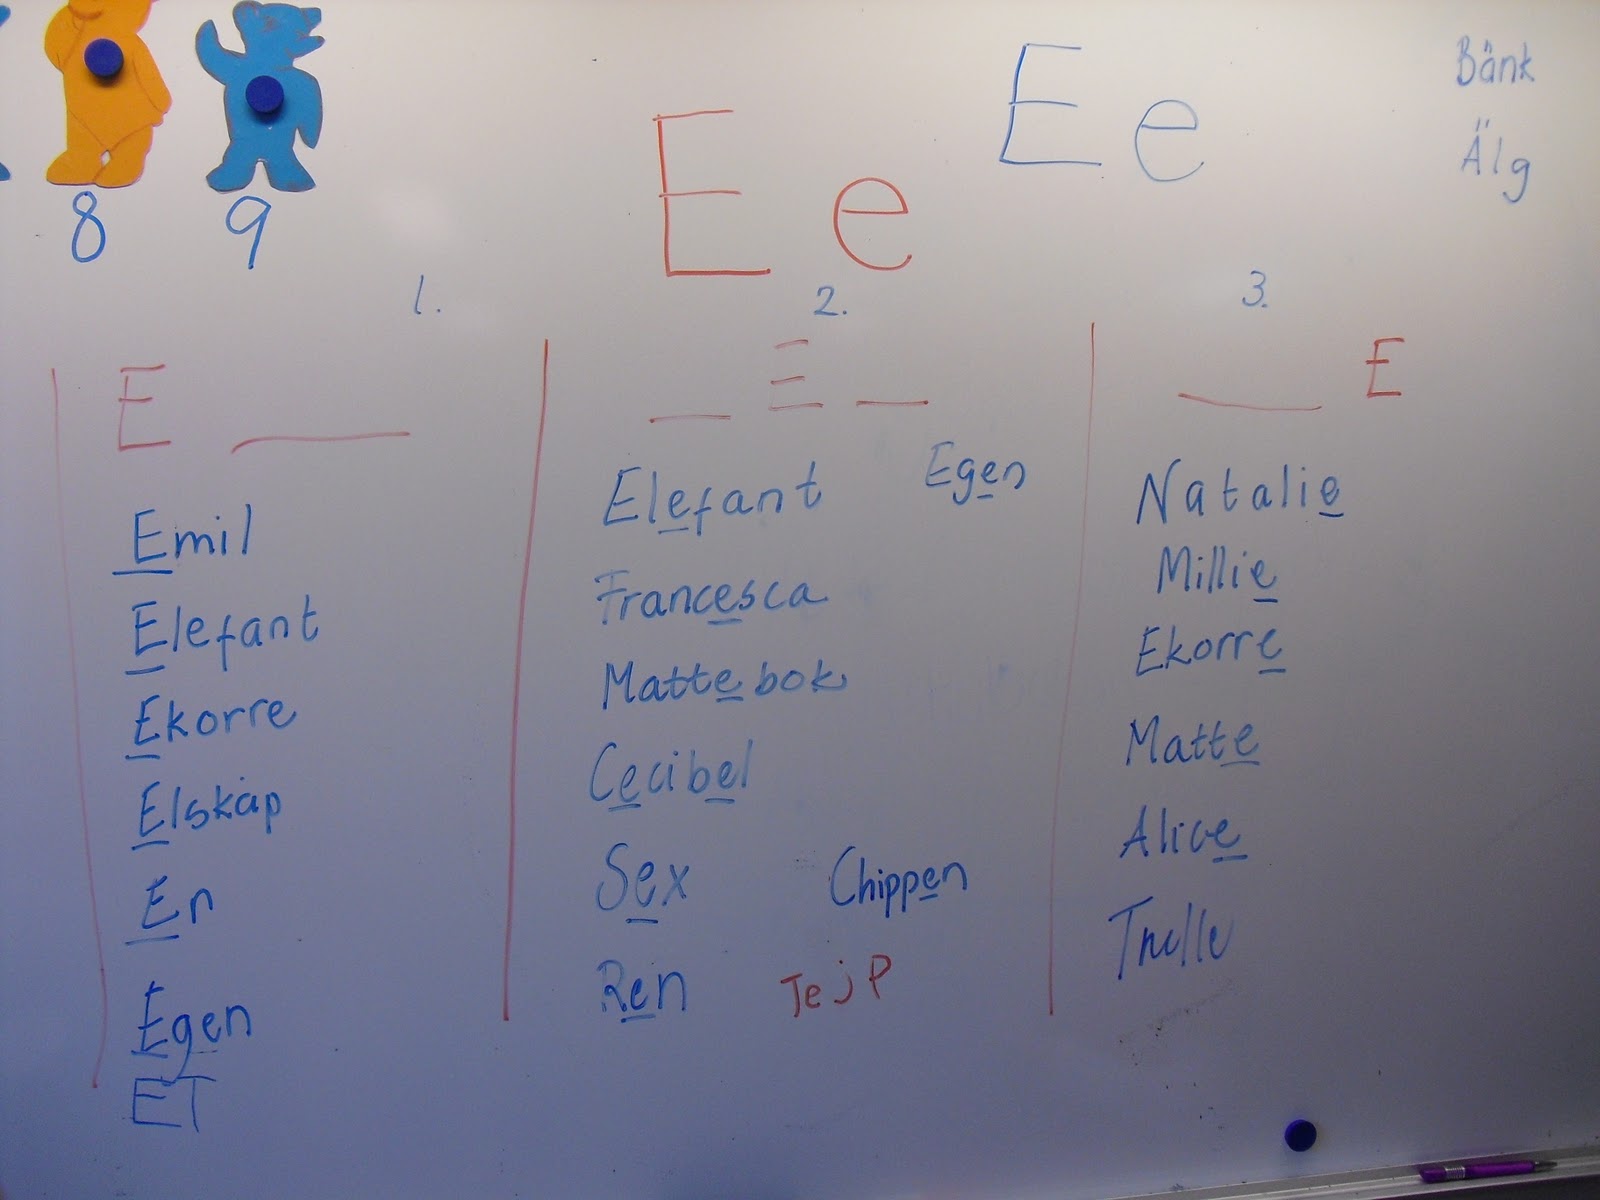 8 9
E e
E e
Bänk
Älg
1.
E
Emil
Elefant
Ekorre
Elskåp
En
Egen
ET
2.
E
Elefant Egen
Francesca
Mattebok
Cecibel
Sex Chippen
Ren Tejp
3.
E
Natalie
Millie
Ekorre
Matte
Alice